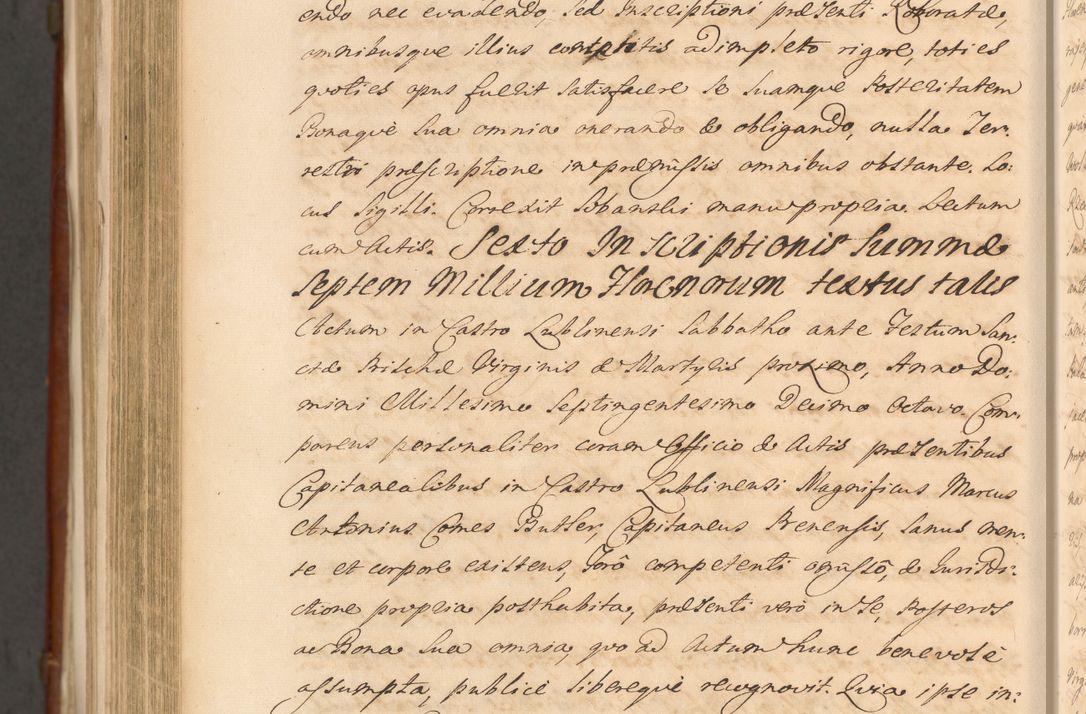 endo nec evadendo, sed Inscriptioni præsenti Roboratæ,
omnibusque illius contentis adimpleto rigore, toties
quoties opus fuerit satisfacere se suamque Posteritatem
Bonaquè sua omnia onerando & obligando, nulla Ter-
restri præscriptione in præmissis omnibus obstante. Lo-
cus Sigilli. Correxit Sobanski manu propria. Lectum
cum Actis. Sexto Inscriptionis Summæ
Septem Millium Florenorum textus talis
Actum in Castro Lublinensi Sabbatho ante Festum San-
ctæ Priscæ Virginis & Martyris proximo, Anno Do-
mini Millesimo Septingentesimo Decimo Octavo. Com-
parens personaliter coram Officio & Actis præsentibus
Capitanealibus in Castro Lublinensi Magnificus Marcus
Antonius Comes Butler, Capitaneus Prenensis, sanus men-
te et corpore existens, Forô competenti omissô, & Jurisdi-
ctione propria posthabita, præsenti verò in se, Posteros
ac Bona sua omnia, quo ad Actum hunc benevolè
assumpta, publicè liberequè recognovit. Quia ipse in-